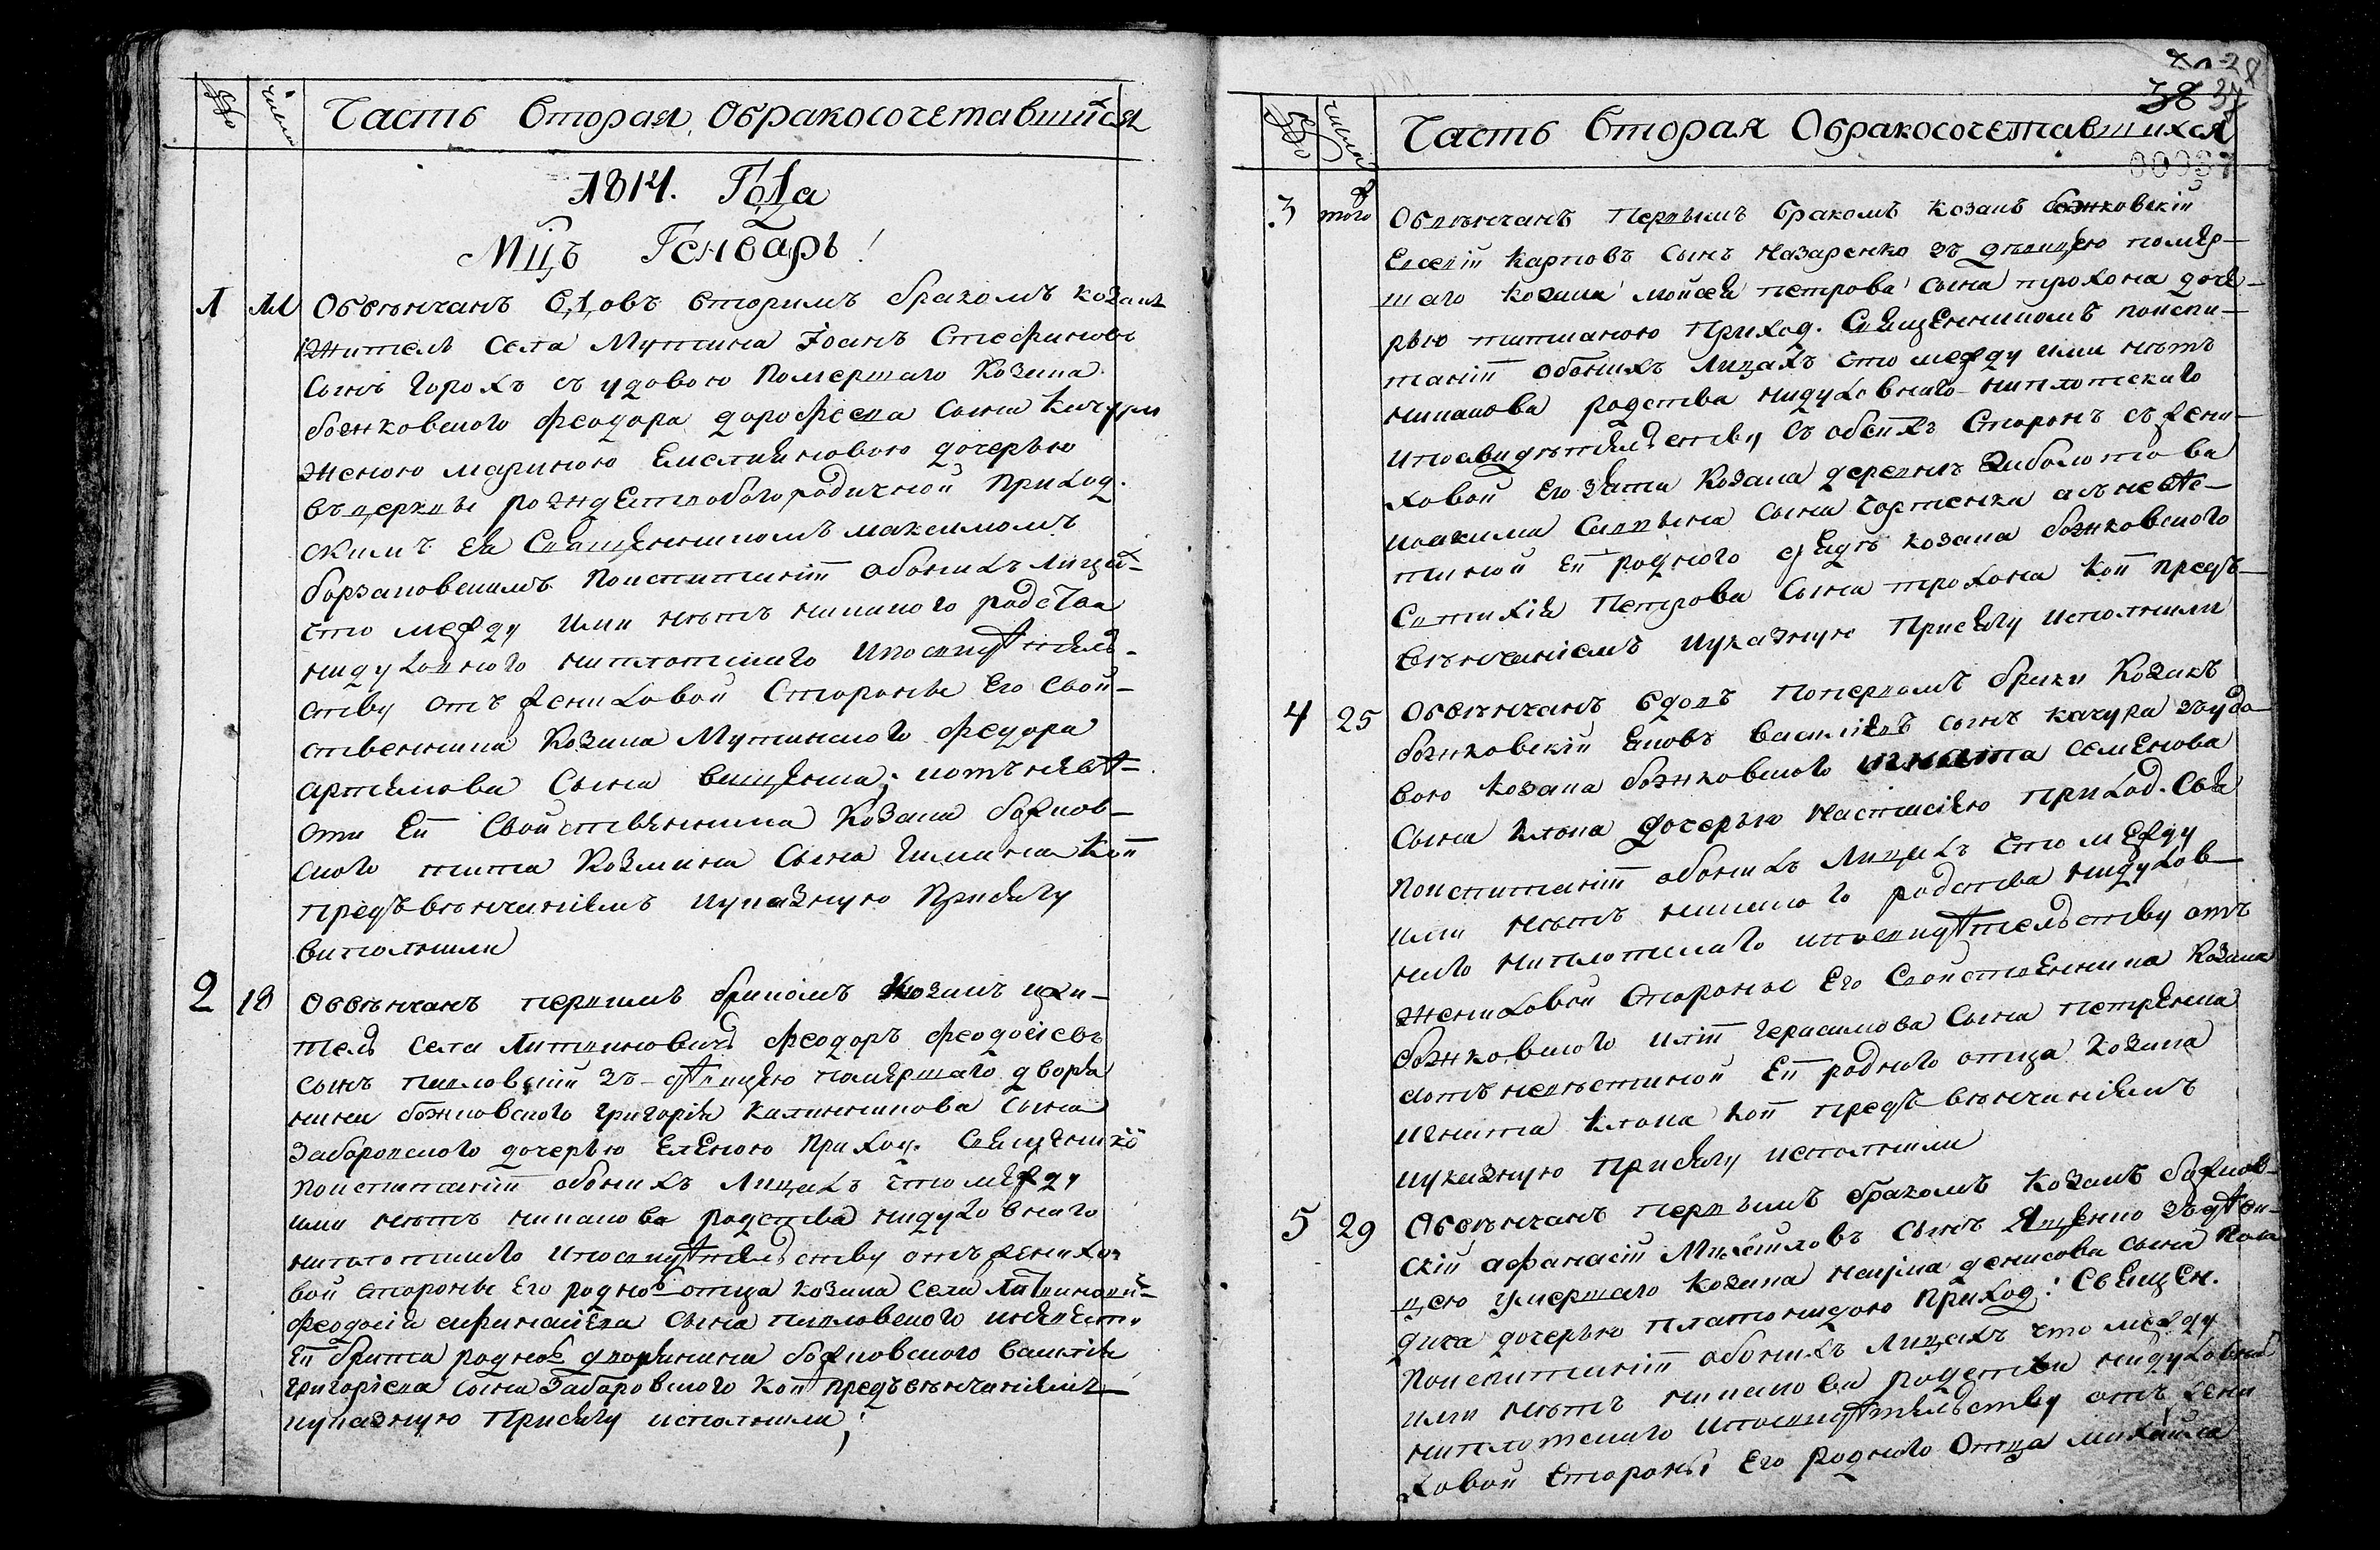 Часть Вторая Обракосочетавшихся
число
1814. Года
Мцъ Генварь
1 11 Обвѣнчанъ вдовъ вторимъ бракомъ козакъ
Житель Села Мутина Іоанъ Стефановъ
Сынъ Горохъ съ удовою Помершаго Козака
божковского Феодора дорофеева Сына Качури
Женою Мариною Емелияновою дочерью
въ церквѣ рождествобогородичной Приход.
скимъ Ея Священникомъ Максимомъ
борзаковскимъ Поиспитаніи обоихъ лицах
что между ими нѣтъ никакого родства
нидуховного ниплотского ипосвидѣтель-
ству отъ жениховой Стороны Его Свой-
ственника Козака Мутинского Федора
артемова Сына ; иотъ невѣ-
сти Еи Свойственника Козака божков-
ского тита Козмина Сына кои
предъвѣнчаніемъ иуказную Присягу
виполнили
2 18 Обвѣнчанъ первимъ бракомъ Козакъ ижи-
тель Села Литвиновичъ Феодоръ Феодосіевъ
сынъ павловскій зъ дѣвицею помершаго дворя
нина божковского Григорія Калинникова Сына
Забаровского дочерью Еленою Приход. Священнико
Поиспитаніи обоихъ Лицахъ что между
ими нѣтъ никакова родства нидуховнаго
ниплотского ипосвидѣтельству отъ женихо
вой стороны Его родно отца козака Села Литвинович
Феодосія афанасіева Сына павловского иневести
Еи брата родно дворянина божковского Василія
Григоріева Сына Забаровского кои предъвѣнчаніемъ
иуказную Присягу исполнили;
28
38 37
Часть Вторая Обракосочетавшихся
числа
00037
3 того Обвѣнчанъ первымъ бракомъ козакъ божковскій
Евсевій Карповъ Сынъ Назаренко зъ дѣвицею помер-
шаго козака Мойсея петрова Сына трохона доче-
рью титианою Приход. Священникомъ поиспи-
таніи обоихъ лицахъ что между ими нѣтъ
никакова родства нидуховнаго ниплотскаго
ипосвидѣтельству съ обеихъ Сторонъ съ жени-
ховой Его зятя Козака деревнѣ Заболотова
иоакима Сына Чортенка анъ невѣ-
стиной Еи родного дядѣ козака божковского
Петрова Сына трохона кои предъ
вѣнчаніемъ иуказную Присягу исполнили
4 25 Обвѣнчанъ вдовъ поперво бракu Козакъ
божковскій Яковъ Василіевъ сынъ качура зъ удо
вою козака божковского игната семенова
Сына клопа дочерью Настасіею Приход. Свя
поиспитаніи обоихъ Лицахъ что между
ими нѣтъ никако го родства нидухов
ного ниплотскаго ипосвидѣтельству отъ
жениховой Стороны Его Свойственника Козака
божковского иліи Герасимова Сына петренка
аотъ невѣстиной Еи родного отца козака
игната клопа кои предъ вѣнчаніемъ
иуказную Присягу исполнили
5 29 Обвѣнчанъ первымъ бракомъ Козакъ божков-
скій афанасій Михайловъ Сынъ Яценко зъ дѣви-
цею умершаго козака наума денисова сына Кола
дика дочерью платонидою Приход: Священ.
Поиспитаніи обоихъ Лицахъ что между
ими нѣтъ никакова родства нидуховна
ниплотского ипосвидѣтельству отъ жени
ховой Стороны Его Родного Отца михаила